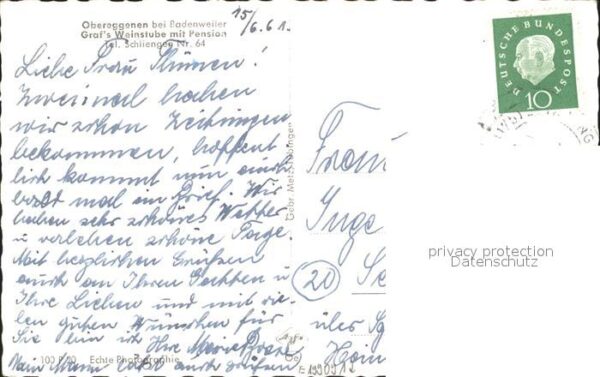 Obereggenen bei Badenweiler
Graf's Weinstube mit Pension
Tel. Schliengen Nr. 64
15/6.61.
Liebe Frau Thünen!
Zweimal haben
wir schon Zeitungen
bekommen, hoffent-
lich kommt nun auch
bald mal ein Brief. Wir
haben sehr schönes Wetter
u verleben schöne Tage.
Mit herzlichen Grüßen
auch an Ihren Gatten u
Ihre Lieben und mit vie-
len guten Wünschen für
Sie bin ich Ihre
Mann lässt auch grüßen
100 Echte Photographie
Gebr. Metz, Tübingen
DEUTSCHE BUNDESPOST
10
Frau
Inge
(20)
über
privacy protection
Datenschutz